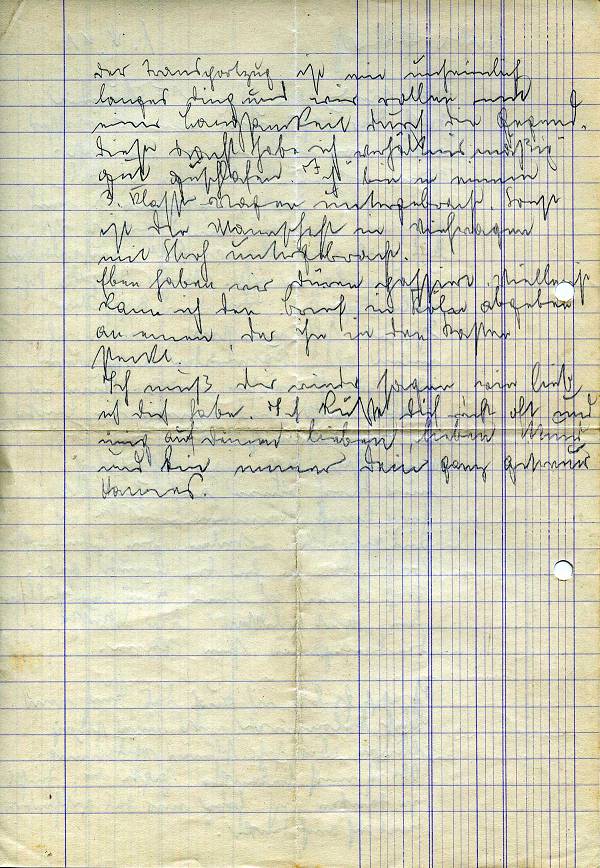 der Transportzug ist ein unheimlich
langes Ding und wir rollen mit
einer Langsamkeit durch die Gegend.
Diese Nacht habe ich verhältnismäßig
gut geschlafen. Ich bin in einem
3. Klasse Wagen untergebracht. Sonst
ist die Mannschaft in Viehwagen
mit Stroh untergebracht.
Eben haben wir Düren passiert. Vielleicht
kann ich den Brief in Köln abgeben
an einen, der ihn in den Kasten
steckt.
Ich muß dir wieder sagen wie lieb
ich dich habe. Ich küsse dich recht oft und
innig auf deinen lieben, lieben Mund
und bin immer dein ganz getreuer
Hannes.